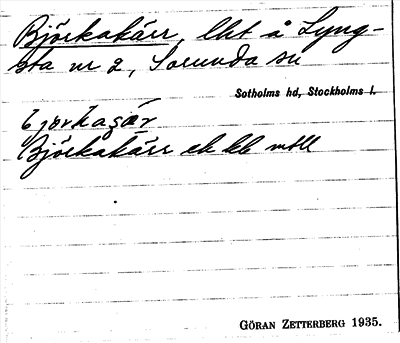 Björkakärr, lht å Lyng-
sta nr 2, Sorunda sn
Sotholms hd, Stockholms l.
Björkakärr ek bl
GÖRAN ZETTERBERG 1935.